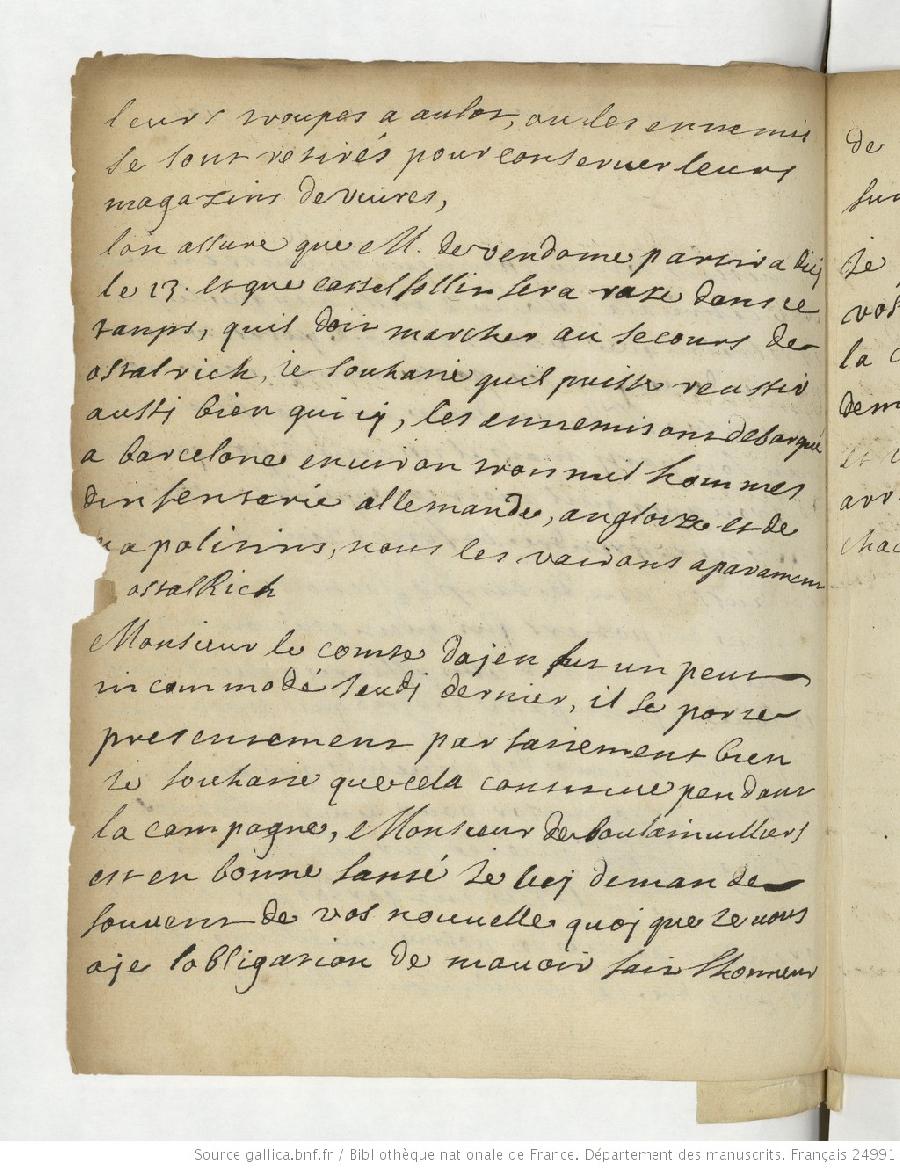 leurs troupes a aulot, ou les ennemis
se sont retirés pour conserver leurs
magazins de vivres,
lon assure que M. de vendome partira dicj
le 23. et que castelfollit sera raze dans ce
tanps, quil doit marcher au secours de
ostalrich, ie souhaite quil puisse reussir
aussi bien quicij, les ennemis ont debarqué
a barcelone environ trois mil hommes
dinfenterie allemande, angloize et de
napolitins, nous les vairons aparament
ostalRich
Monsieur le comte dajen fut un peut
incommodé Jeudj dernier, il se porte
presentement parfaitement bien
ie souhaite que cela continue pendant
la campagne, Monsieur de boulainvilliers
est en bonne santé Je luj demande
souvent de vos nouvelle quoj que ie vous
aje lobligation de mavoir fait lhonneur
de
sur
Je
vos
la
dem
et
arr
chac
Source gallica.bnf.fr / Bibliothèque nationale de France. Département des manuscrits. Français 24991